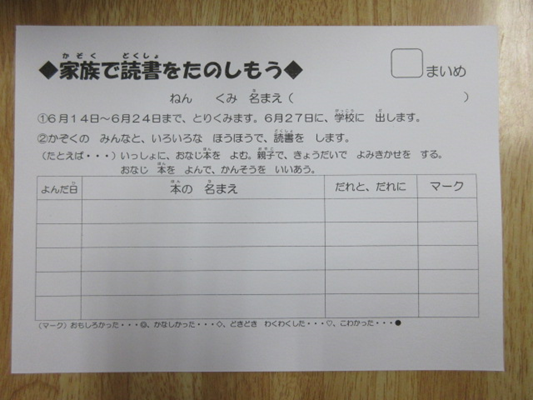 ◆家族で読書をたのしもう◆ まいめ
ねん くみ 名まえ( )
①6月14日~6月24日まで、とりくみます。6月27日に、学校に 出します。
②かぞくの みんなと、いろいろな ほうほうで、読書を します。
(たとえば・・・)いっしょに、おなじ本を よむ。親子で、きょうだいで よみきかせを する。
おなじ 本を よんで、かんそうを いいあう。
よんだ日 本の 名まえ だれと、だれに マーク
(マーク)おもしろかった・・・◎、かなしかった・・・◇、どきどき わくわくした・・・♡、こわかった・・・●